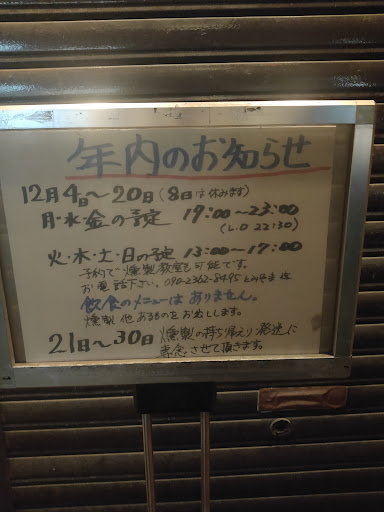 年内のお知らせ
12月4日〜20日(8日は休みます)
月・水・金の予定 19:00〜23:00
(L.O 22:30)
火・木・土・日の予定 13:00〜17:00
予約で燻製教室も可能です。
お電話下さい。090-2362-8495とみやままで
飲食のメニューはありません。
燻製他あるものをお出しします。
21日〜30日 燻製の持ち帰え、発送に
専念させて頂きます。